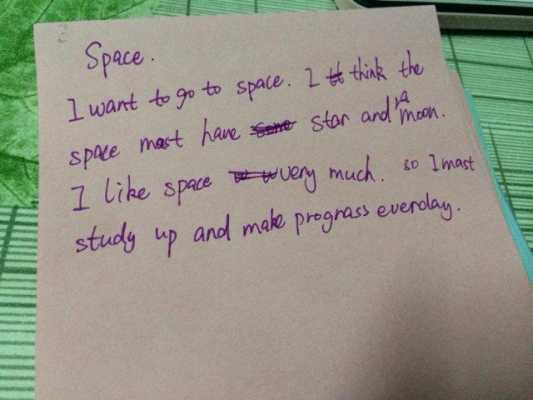 Space.
I want to go to space. I think the
space mast have star and a moon.
I like space very much. so I mast
study up and make prograss everday.